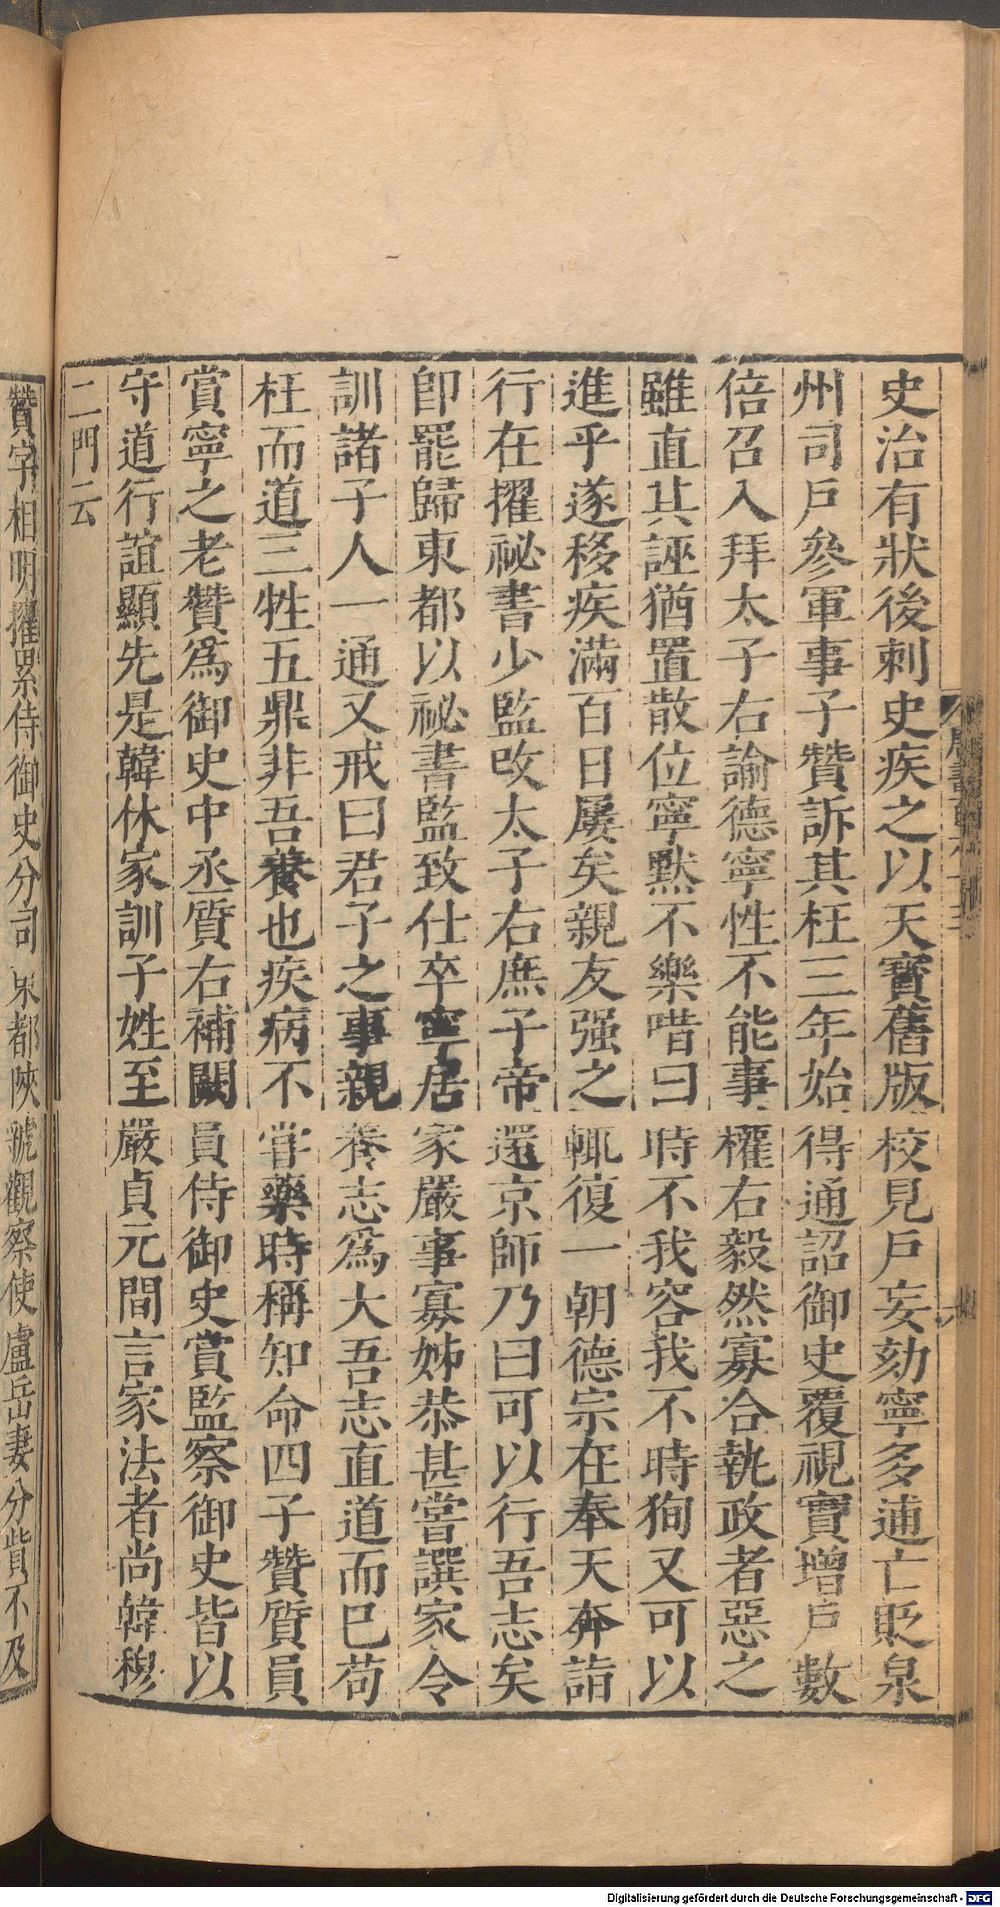 史治有狀後刺史疾之以天寶舊版校見戶妄劾寧多逋亡貶泉
州司戶參軍事子贊訴其枉三年始得通詔御史覆視實增戶數
倍召入拜太子右諭德寧性不能事權右毅然寡合執政者惡之
雖直其誣猶置散位寧默不樂喈曰時不我容我不時狥又可以
進乎遂移疾滿百日屢矣親友强之輒復一朝德宗在奉天奔詣
行在擢祕書少監改太子右庶子帝還京師乃曰可以行吾志矣
卽罷歸東都以祕書監致仕卒寧居家嚴事寡姊恭甚嘗譔家令
訓諸子人一通又戒曰君子之事親養志爲大吾志直道而已苟
枉而道三牲五鼎非吾養也疾病不嘗藥時稱知命四子贊質員
賞寧之老贊爲御史中丞質右補闕員侍御史賞監察御史皆以
守道行誼顯先是韓休家訓子姓至嚴貞元間言家法者尚韓穆
二門云
贊字相明擢累侍御史分司東都陝虢觀察使盧岳妻分貲不及
Digitalisierung gefördert durch die Deutsche Forschungsgemeinschaft - DFG